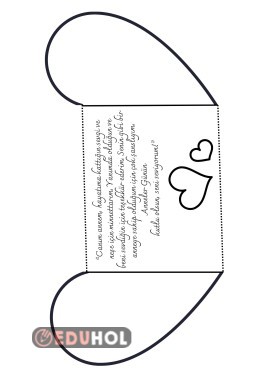 "Canım annem, hayatıma kattığın sevgi ve
neşe için minnettarım. Yanımda olduğun ve
beni sevdiğin için teşekkür ederim. Senin gibi bir
anneye sahip olduğum için çok şanslıyım.
Anneler Günün
kutlu olsun, seni seviyorum!"
EDUHOL